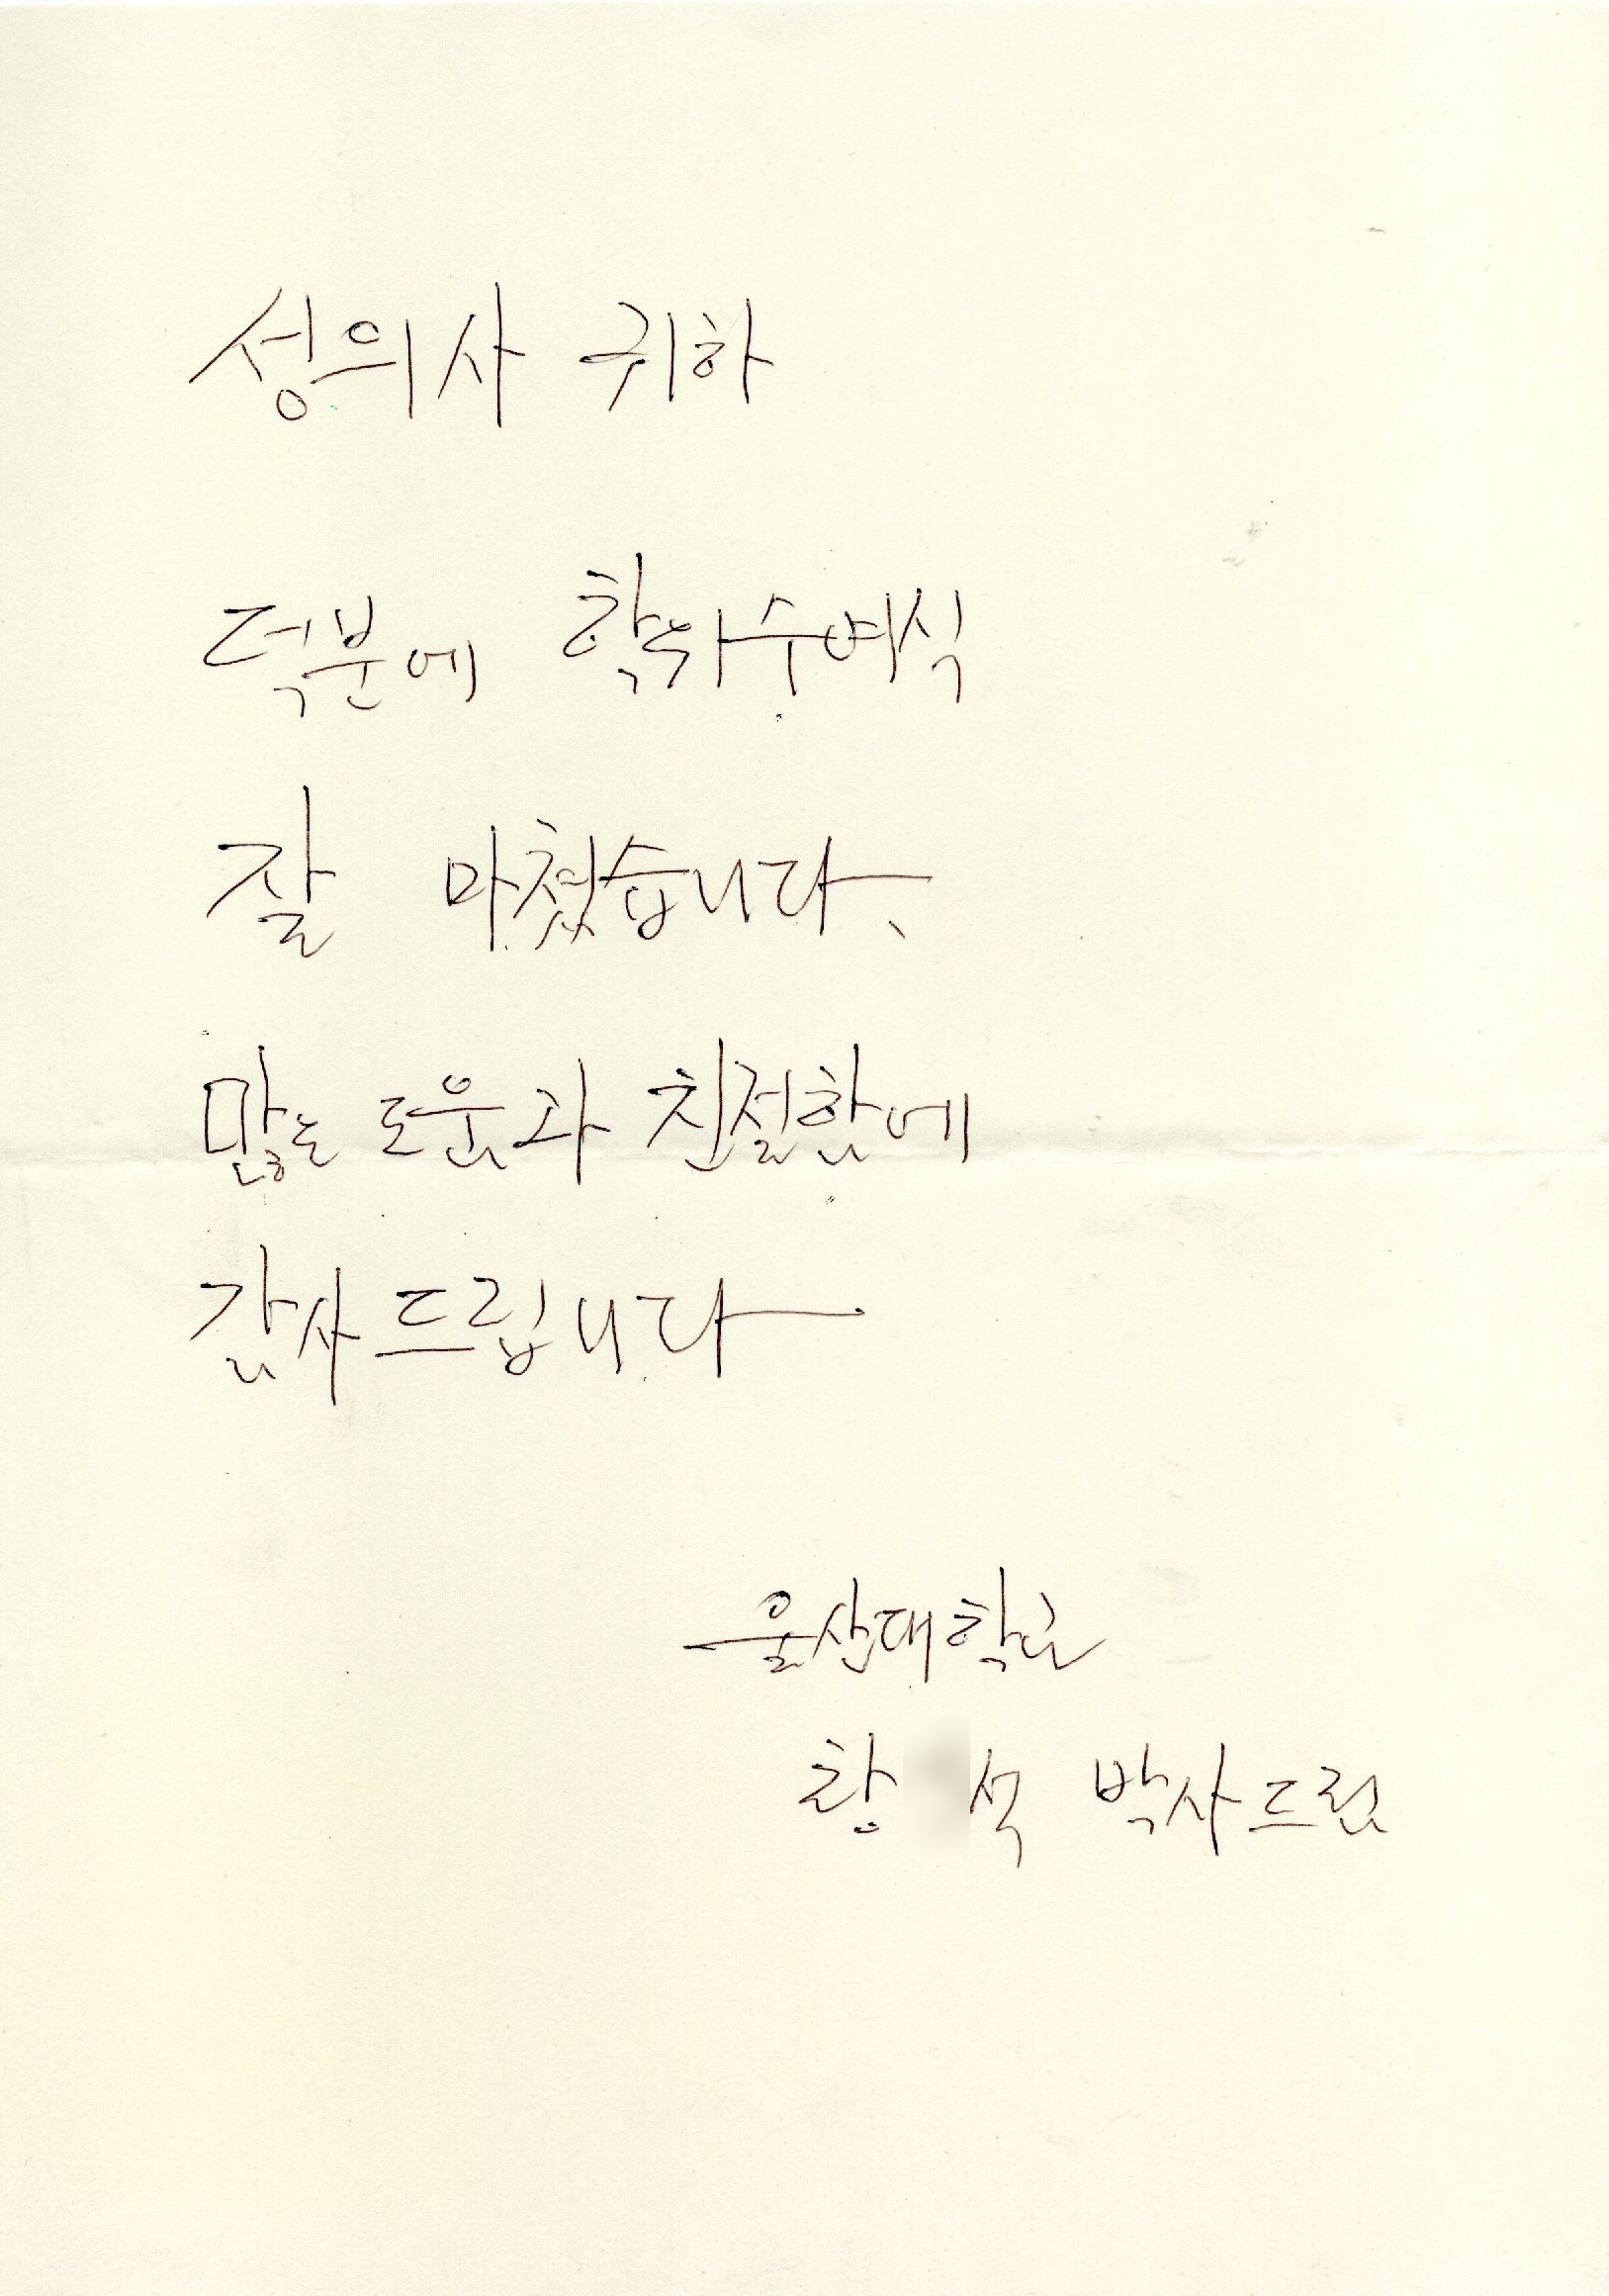 성의사 귀하
덕분에 학위수여식
잘 마쳤습니다.
많은 도움과 친절함에
감사드립니다
울산대학교
황 석 박사드림